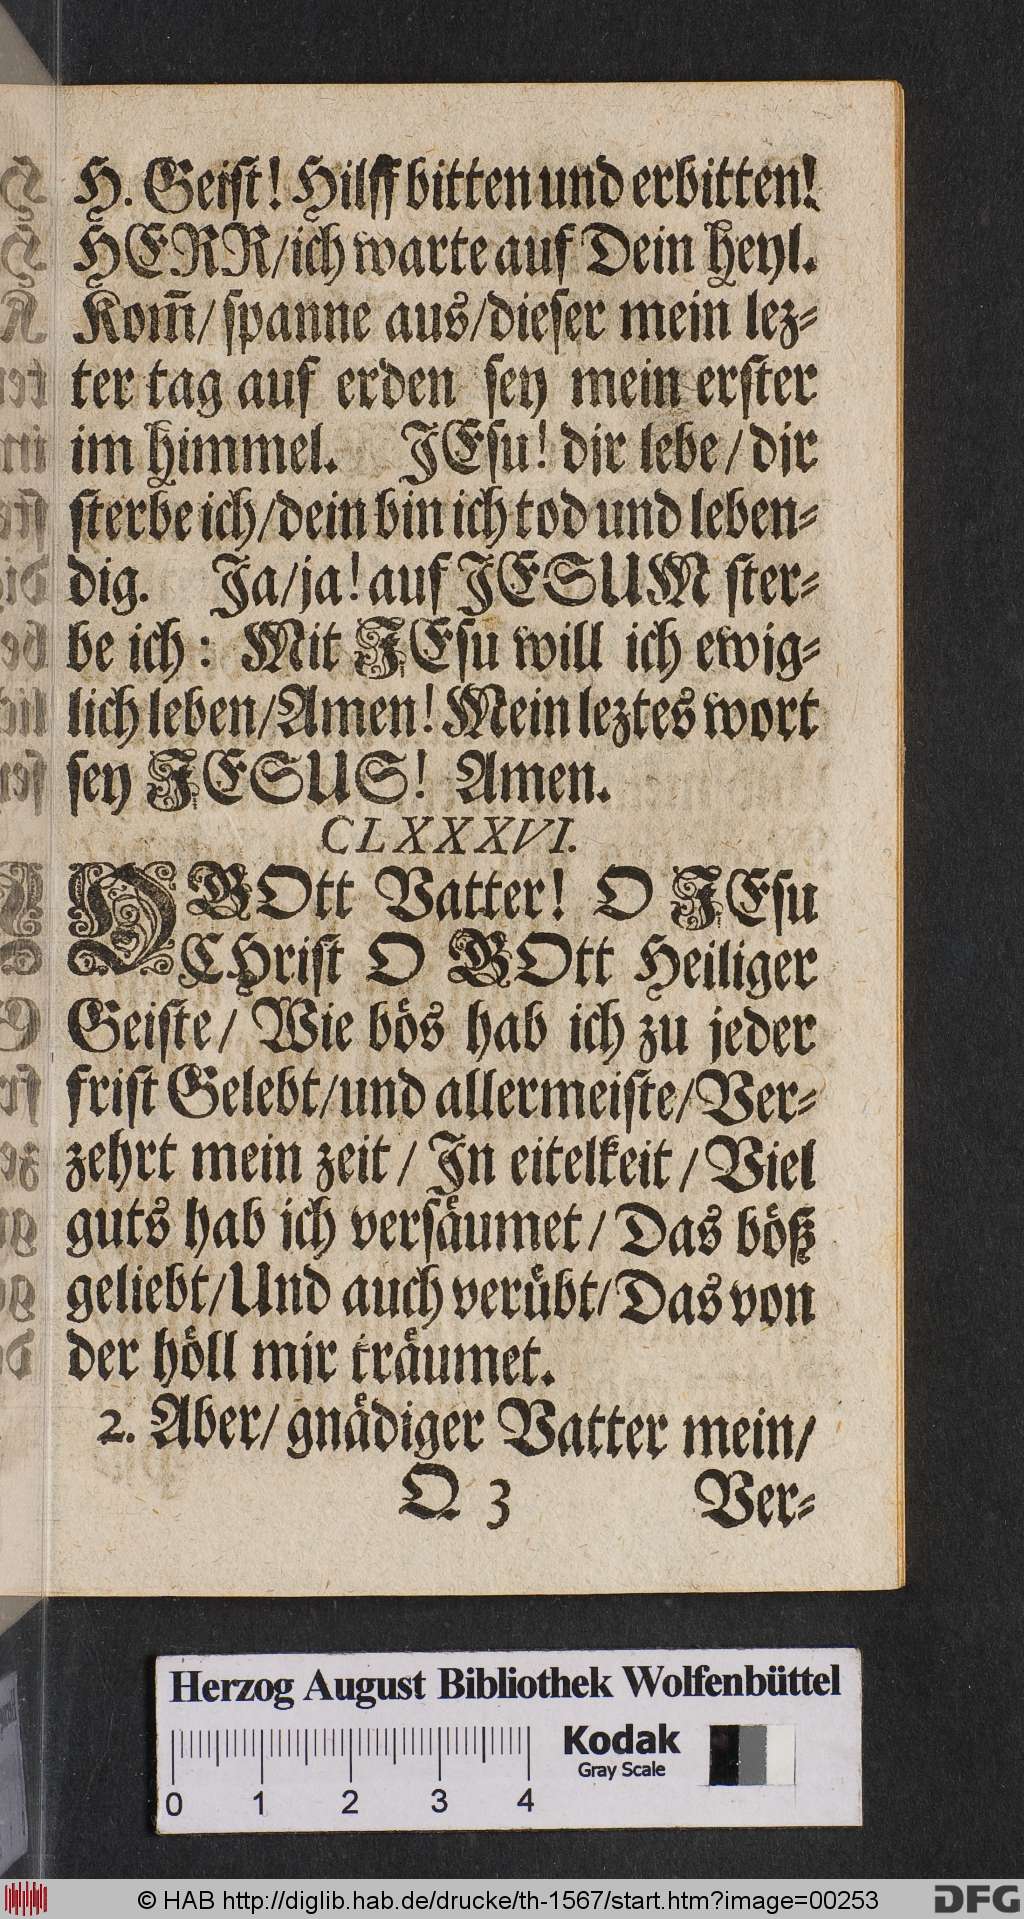 H. Geist! Hilff bitten und erbitten!
HERR/ich warte auf Dein heyl.
Kom̃/ spanne aus/dieser mein lez-
ter tag auf erden sey mein erster
im himmel. JEsu! dir lebe/ dir
sterbe ich/dein bin ich tod und leben-
dig. Ja/ja! auf JESUM ster-
be ich: Mit JEsu will ich ewig-
lich leben/Amen! Mein leztes wort
sey JESUS! Amen.
CLXXXVI.
O GOtt Vatter! O JEsu
CHrist O GOtt Heiliger
Geiste/ Wie bös hab ich zu jeder
frist Gelebt/und allermeiste/ Ver-
zehrt mein zeit/ In eitelkeit/ Viel
guts hab ich versäumet/ Das böß
geliebt/Und auch verübt/ Das von
der höll mir träumet.
2. Aber/ gnädiger Vatter mein/
Q 3 Ver-
Herzog August Bibliothek Wolfenbüttel
Kodak
Gray Scale
0 1 2 3 4
© HAB http://diglib.hab.de/drucke/th-1567/start.htm?image=00253
DFG